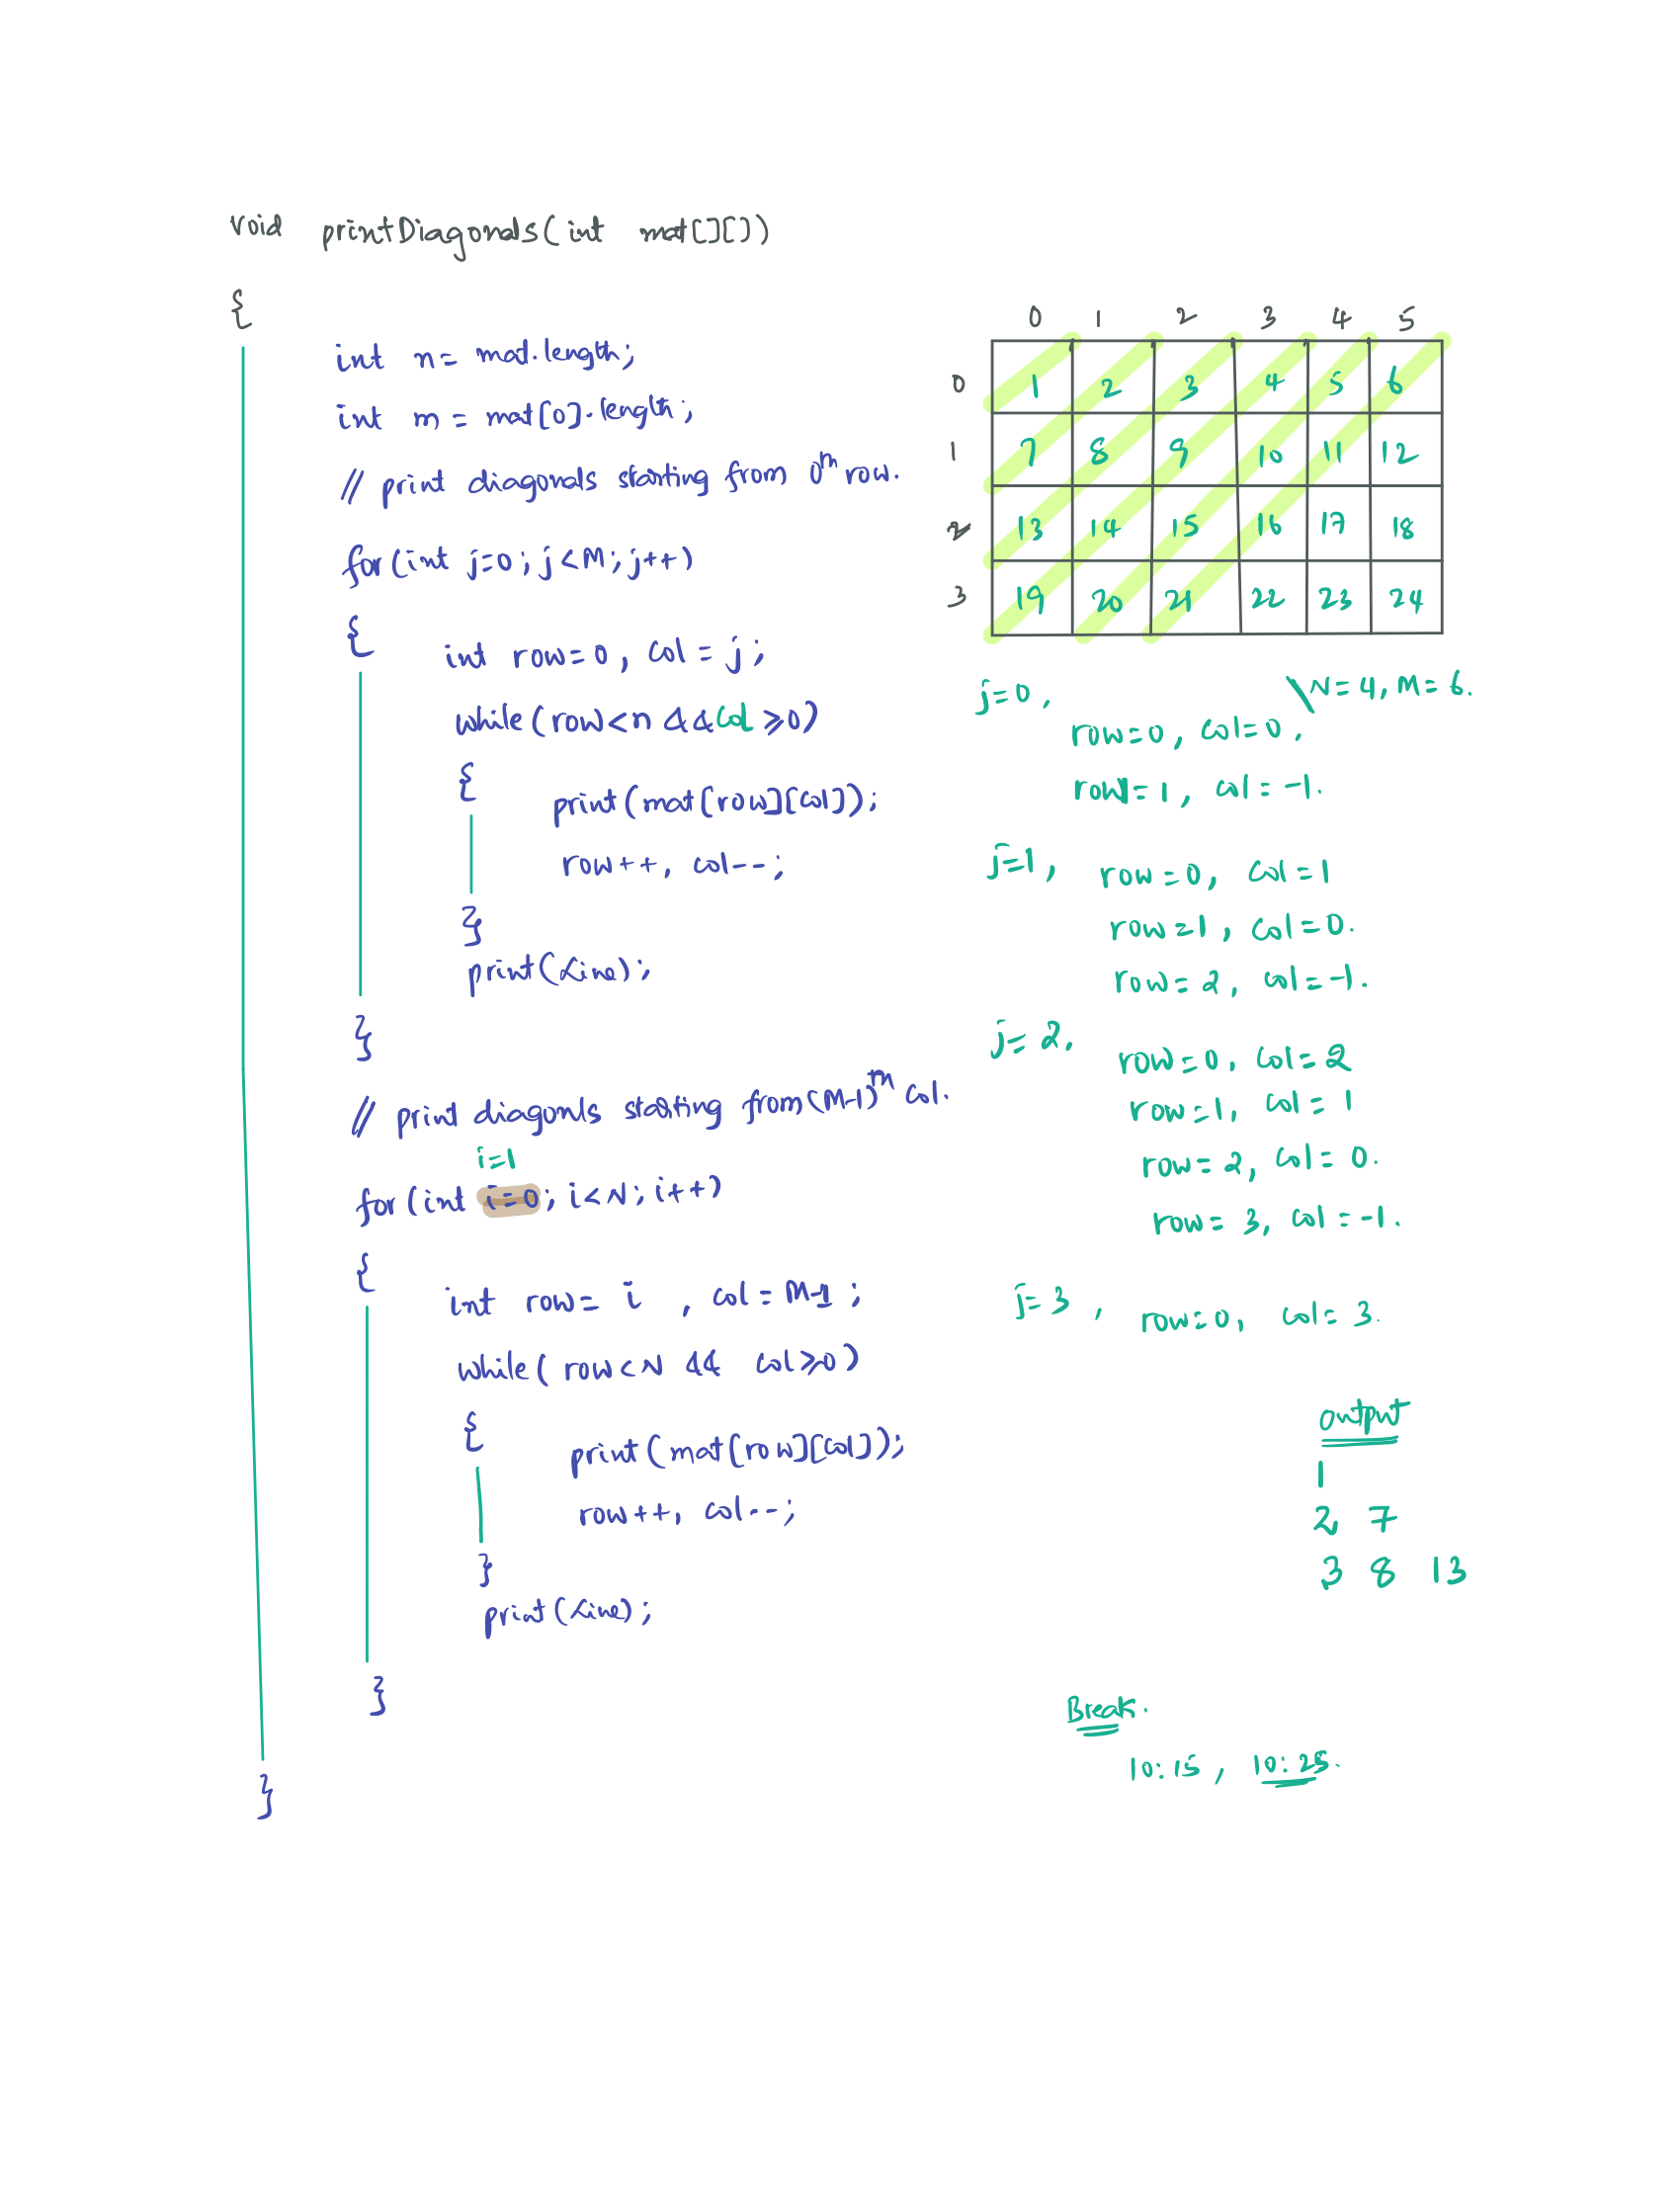 void printDiagonals(int mat[][])
{
int n = mat.length;
int m = mat[0].length;
// print diagonals starting from 0th row.
for(int j=0; j<M; j++)
{
int row=0, col = j;
while(row<n && col ≥0)
{
print(mat[row][col]);
row++, col--;
}
print(Line);
}
// print diagonls starting from (M-1)th col.
i=1
for(int i=0; i<N; i++)
{
int row= i , col= M-1 ;
while( row<N && col≥0)
{
print(mat[row][col]);
row++, col--;
}
print(Line);
}
}
0 1 2 3 4 5
0 1 2 3 4 5 6
1 7 8 9 10 11 12
2 13 14 15 16 17 18
3 19 20 21 22 23 24
N=4, M=6.
j=0,
row=0, col=0.
row=1, col=-1.
j=1, row=0, col=1
row=1, col=0.
row=2, col=-1.
j=2. row=0, col=2
row=1, col=1
row=2, col=0.
row=3, col=-1.
j=3, row=0, col=3.
output
1
2 7
3 8 13
Break.
10:15, 10:25.